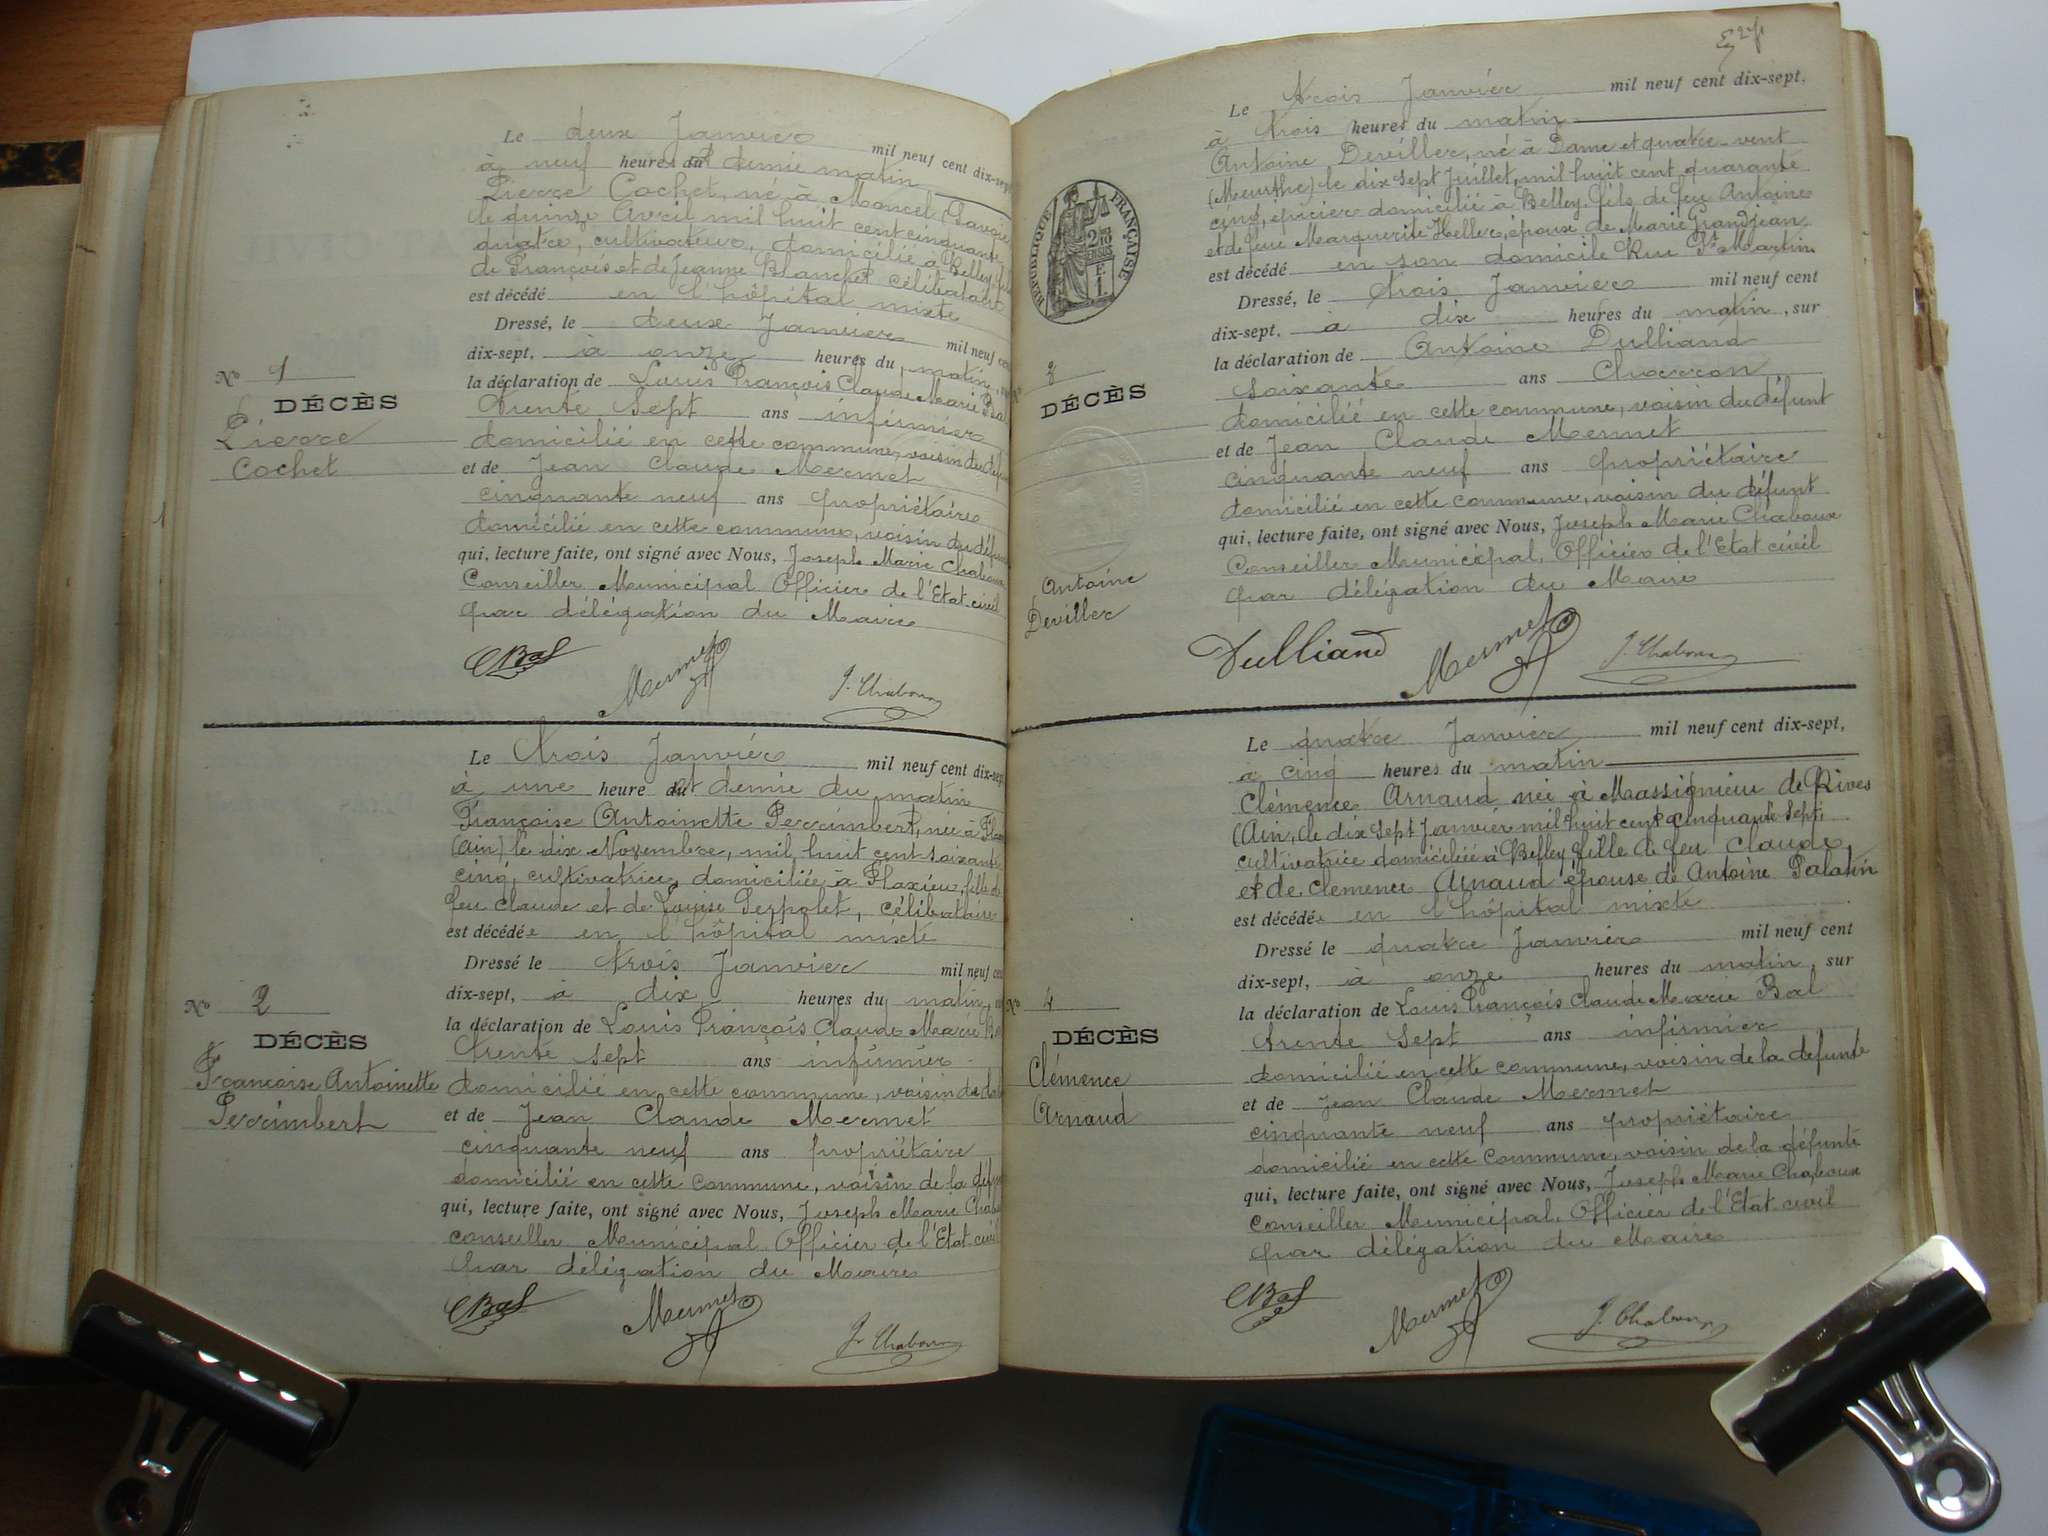 Le deux Janvier mil neuf cent dix-sept
à neuf heures du et demie matin
Pierre Cochet, né à Marcel (Savoie
le quinze Avril mil huit cent cinquante
quatre, cultivateur, domicilié à Belley, fils
de François et de Jeanne Blanchet célibataire
est décédé en l'hôpital mixte
Dressé, le deux Janvier mil neuf cent
dix-sept, à onze heures du matin,
la déclaration de Louis François Claude Marie Bal
trente sept ans infirmier
domicilié en cette commune, voisin du
et de Jean Claude Mermet
cinquante neuf ans propriétaire
domicilié en cette commune, voisin du
qui, lecture faite, ont signé avec Nous, Joseph Marie
Conseiller Municipal Officier de l'Etat civil
par délégation du Maire
CBal
Mermet
J. Chaboux
No 1
DÉCÈS
Pierre
Cochet
Le trois Janvier mil neuf cent dix-sept
à une heure du et demie du matin
Françoise Antoinette Perrimbert, née à
(Ain) le dix Novembre, mil huit cent soixante
cinq, cultivatrice, domiciliée à Flaxieu, fille de
feu Claude et de Louise Serpolet, célibataire
est décédée en l'hôpital mixte
Dressé le trois Janvier mil neuf cent
dix-sept, à dix heures du matin,
la déclaration de Louis François Claude Marie
trente sept ans infirmier
domicilié en cette commune, voisin de la
et de Jean Claude Mermet
cinquante neuf ans propriétaire
domicilié en cette commune, voisin de la
qui, lecture faite, ont signé avec Nous, Joseph Marie
conseiller Municipal Officier de l'Etat civil
par délégation du Maire
CBal
Mermet
J. Chaboux
No 2
DÉCÈS
Françoise Antoinette
Perrimbert
Le trois Janvier mil neuf cent dix-sept,
à trois heures du matin
Antoine Deviller, né à Dame et quatre-vent
(Meurthe) le dix sept Juillet, mil huit cent quarante
cinq, épicier domicilié à Belley fils de feu Antoine
et de feue Marguerite Heller, épouse de Marie Grandjean
est décédé en son domicile Rue St Martin
Dressé, le trois Janvier mil neuf cent
dix-sept, à dix heures du matin, sur
la déclaration de Antoine Dulliand
soixante ans Charron
domicilié en cette commune, voisin du défunt
et de Jean Claude Mermet
cinquante neuf ans propriétaire
domicilié en cette commune, voisin du défunt
qui, lecture faite, ont signé avec Nous, Joseph Marie Chaboux
Conseiller Municipal, Officier de l'Etat civil
par délégation du Maire
Dulliand
Mermet
J. Chaboux
RÉPUBLIQUE FRANÇAISE
No 3
DÉCÈS
Antoine
Deviller
Le quatre Janvier mil neuf cent dix-sept,
à cinq heures du matin
Clémence Arnaud née à Massignieu de Rives
(Ain, le dix sept Janvier mil huit cent cinquante sept,
cultivatrice domiciliée à Belley fille de feu Claude
et de Clemence Arnaud épouse de Antoine Palatin
est décédée en l'hôpital mixte
Dressé le quatre Janvier mil neuf cent
dix-sept, à onze heures du matin, sur
la déclaration de Louis François Claude Marie Bal
trente sept ans infirmier
domicilié en cette commune, voisin de la defunte
et de Jean Claude Mermet
cinquante neuf ans propriétaire
domicilié en cette commune, voisin de la défunte
qui, lecture faite, ont signé avec Nous, Joseph Marie Chaboux
Conseiller Municipal, Officier de l'Etat civil
par délégation du Maire
CBal
Mermet
J. Chaboux
No 4
DÉCÈS
Clémence
Arnaud